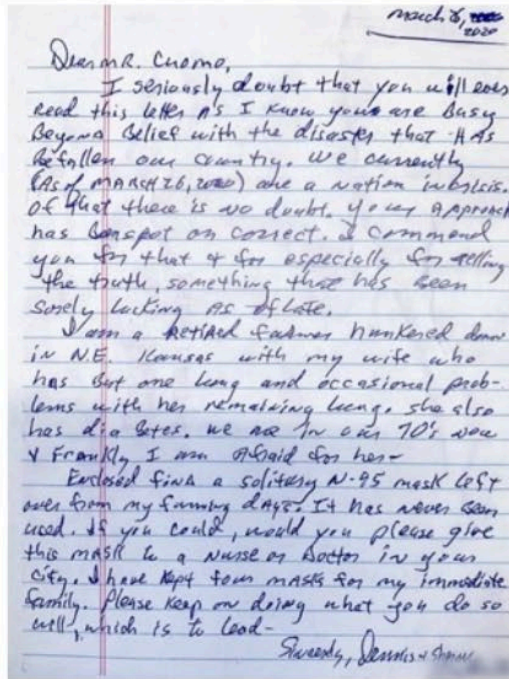 March 26, 2020
Dear Mr. Cuomo,
I seriously doubt that you will ever
read this letter as I know your are busy
beyond belief with the disaster that has
befallen our country. We currently
(as of March 26, 2020) are a nation in crisis.
Of that there is no doubt. Your approach
has been spot on correct. I commend
you for that & for especially for telling
the truth, something that has been
sorely lacking as of late.
I am a retired farmer hunkered down
in N.E. Kansas with my wife who
has but one lung and occasional prob-
lems with her remaining lung. She also
has diabetes. We are in our 70's now
& frankly I am afraid for her-
Enclosed find a solitary N-95 mask left
over from my farming days. It has never been
used. If you could, would you please give
this mask to a nurse or doctor in your
city. I have kept four masks for my immediate
family. Please keep on doing what you do so
well, which is to lead-
Sincerely, Dennis &